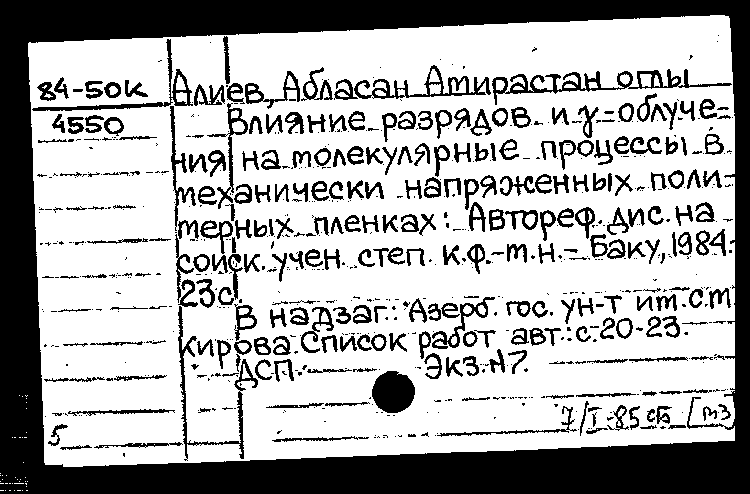 84-50к Алиев, Абласан Амирастан оглы
4550 Влияние разрядов и γ-облуче-
ния на молекулярные процессы в
механически напряженных поли-
мерных пленках: Автореф. дис. на
соиск. учен. степ. к.ф.-м.н. - Баку, 1984.-
23с.
В надзаг.: Азерб. гос. ун-т им. С.М.
Кирова. Список работ авт.: с. 20-23.
ДСП. Экз. N7.
7/I-85 [мз]
5